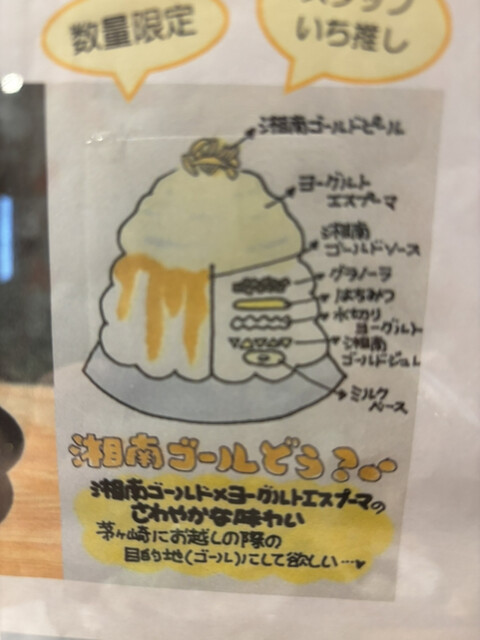 数量限定
スタッフ
いち推し
湘南ゴールドピール
ヨーグルト
エスプーマ
湘南
ゴールドソース
グラノーラ
はちみつ
水切り
ヨーグルト
湘南
ゴールドジュレ
ミルク
ベース
湘南ゴールどう？
湘南ゴールド×ヨーグルトエスプーマの
さわやかな味わい
茅ヶ崎にお越しの際の
目的地(ゴール)にして欲しい…♥